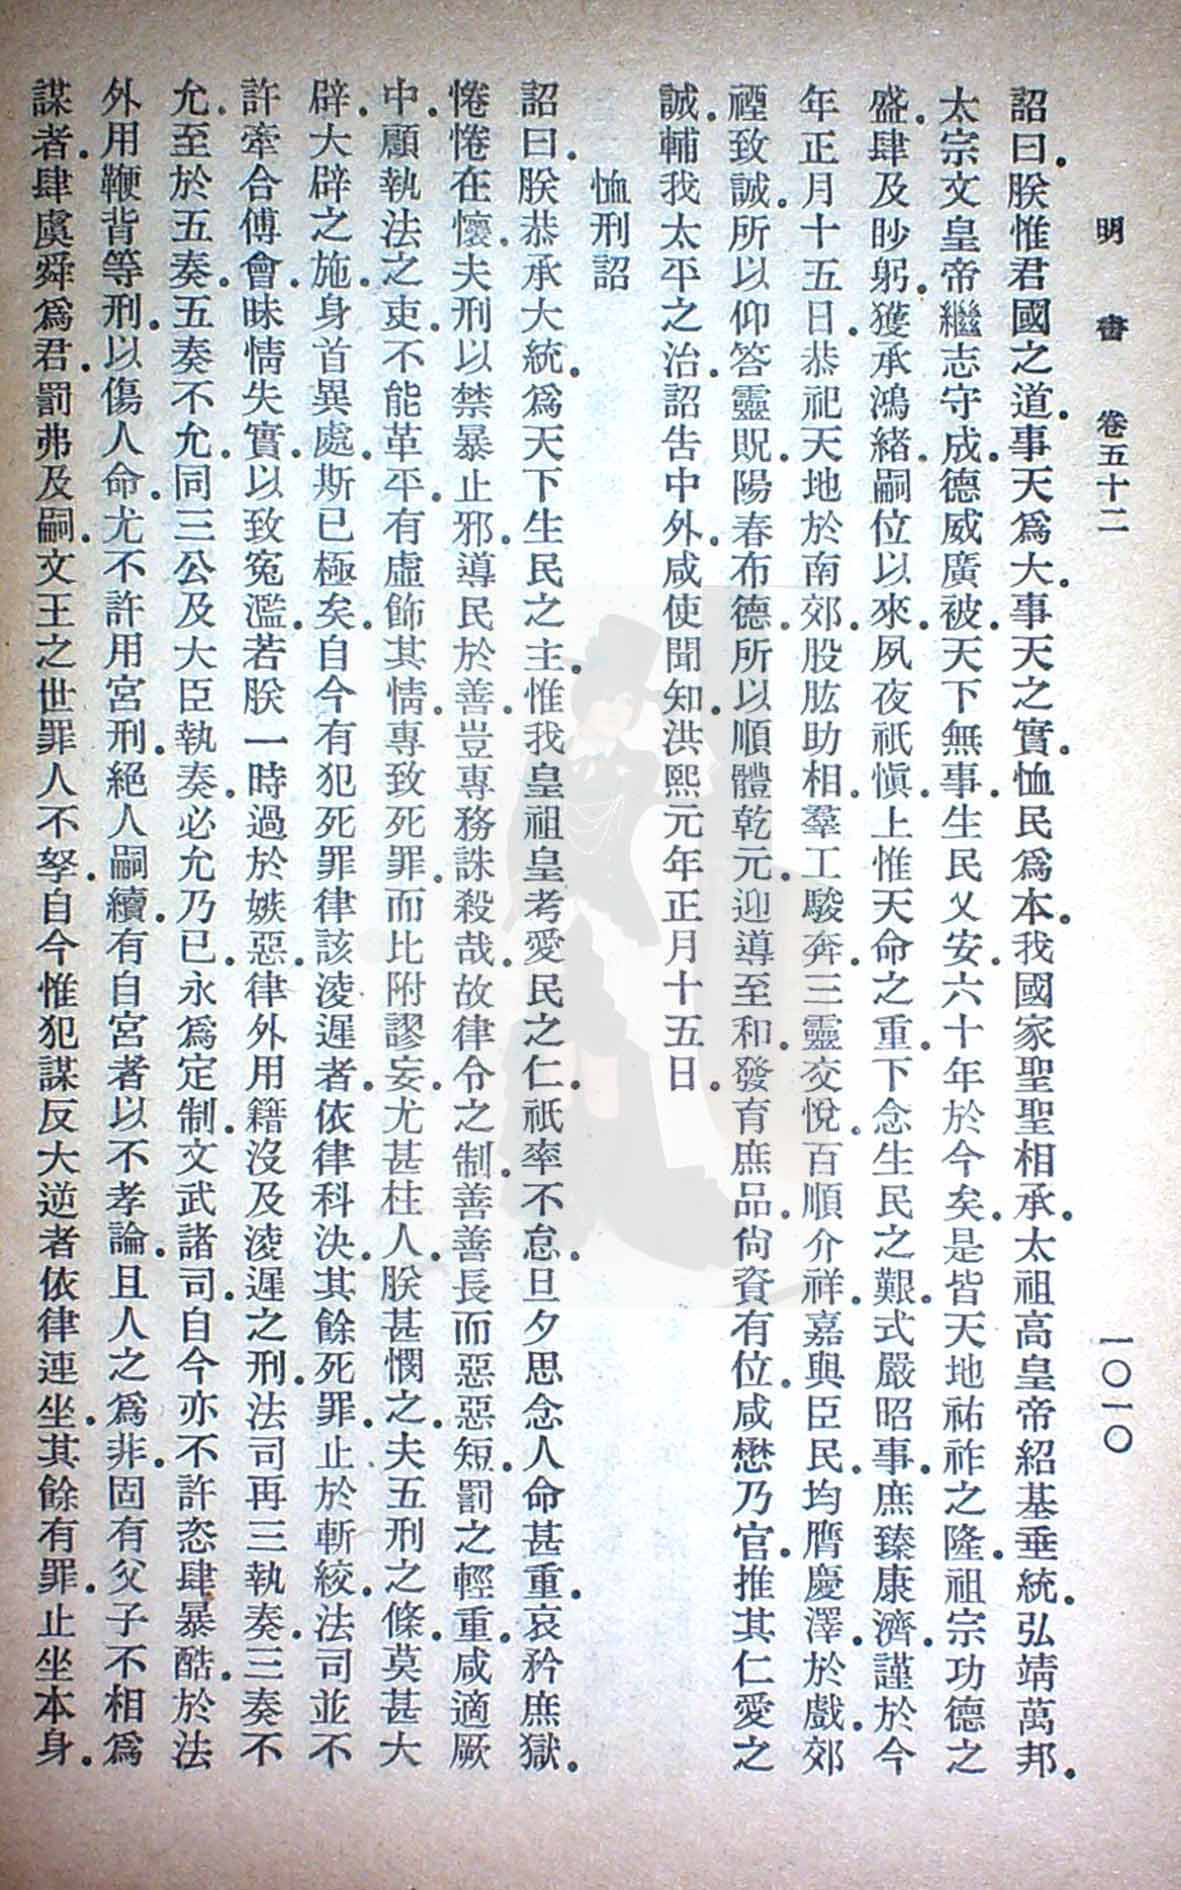 明書 卷五十二 一〇一〇
詔曰。朕惟君國之道。事天爲大。事天之實。恤民爲本。我國家聖聖相承。太祖高皇帝紹基垂統。弘靖萬邦。
太宗文皇帝繼志守成。德威廣被。天下無事。生民乂安。六十年於今矣。是皆天地祐祚之隆。祖宗功德之
盛。肆及眇躬。獲承鴻緒。嗣位以來。夙夜祇愼。上惟天命之重。下念生民之艱。式嚴昭事。庶臻康濟。謹於今
年正月十五日。恭祀天地於南郊。股肱助相。羣工駿奔。三靈交悅。百順介祥。嘉與臣民。均膺慶澤。於戲。郊
禋致誠。所以仰答靈貺。陽春布德。所以順體乾元。迎導至和。發育庶品。尙資有位。咸懋乃官。推其仁愛之
誠。輔我太平之治。詔吿中外。咸使聞知。洪熙元年正月十五日。
恤刑詔
詔曰。朕恭承大統。爲天下生民之主。惟我皇祖皇考愛民之仁。祇率不怠。旦夕思念人命甚重。哀矜庶獄。
惓惓在懷。夫刑以禁暴止邪。導民於善。豈專務誅殺哉。故律令之制。善善長而惡惡短。罰之輕重。咸適厥
中。顧執法之吏。不能革平。有虛飾其情。專致死罪。而比附謬妄。尤甚枉人。朕甚憫之。夫五刑之條。莫甚大
辟。大辟之施。身首異處。斯已極矣。自今有犯死罪律該淩遲者。依律科決。其餘死罪。止於斬絞。法司並不
許牽合傅會。昧情失實。以致寃濫。若朕一時過於嫉惡。律外用籍沒及淩遲之刑。法司再三執奏。三奏不
允。至於五奏。五奏不允。同三公及大臣執奏。必允乃已。永爲定制。文武諸司。自今亦不許恣肆暴酷。於法
外用鞭背等刑。以傷人命。尤不許用宮刑。絕人嗣續。有自宮者以不孝論。且人之爲非。固有父子不相爲
謀者。肆虞舜爲君。罰弗及嗣。文王之世罪人不孥。自今惟犯謀反大逆者依律連坐。其餘有罪。止坐本身。